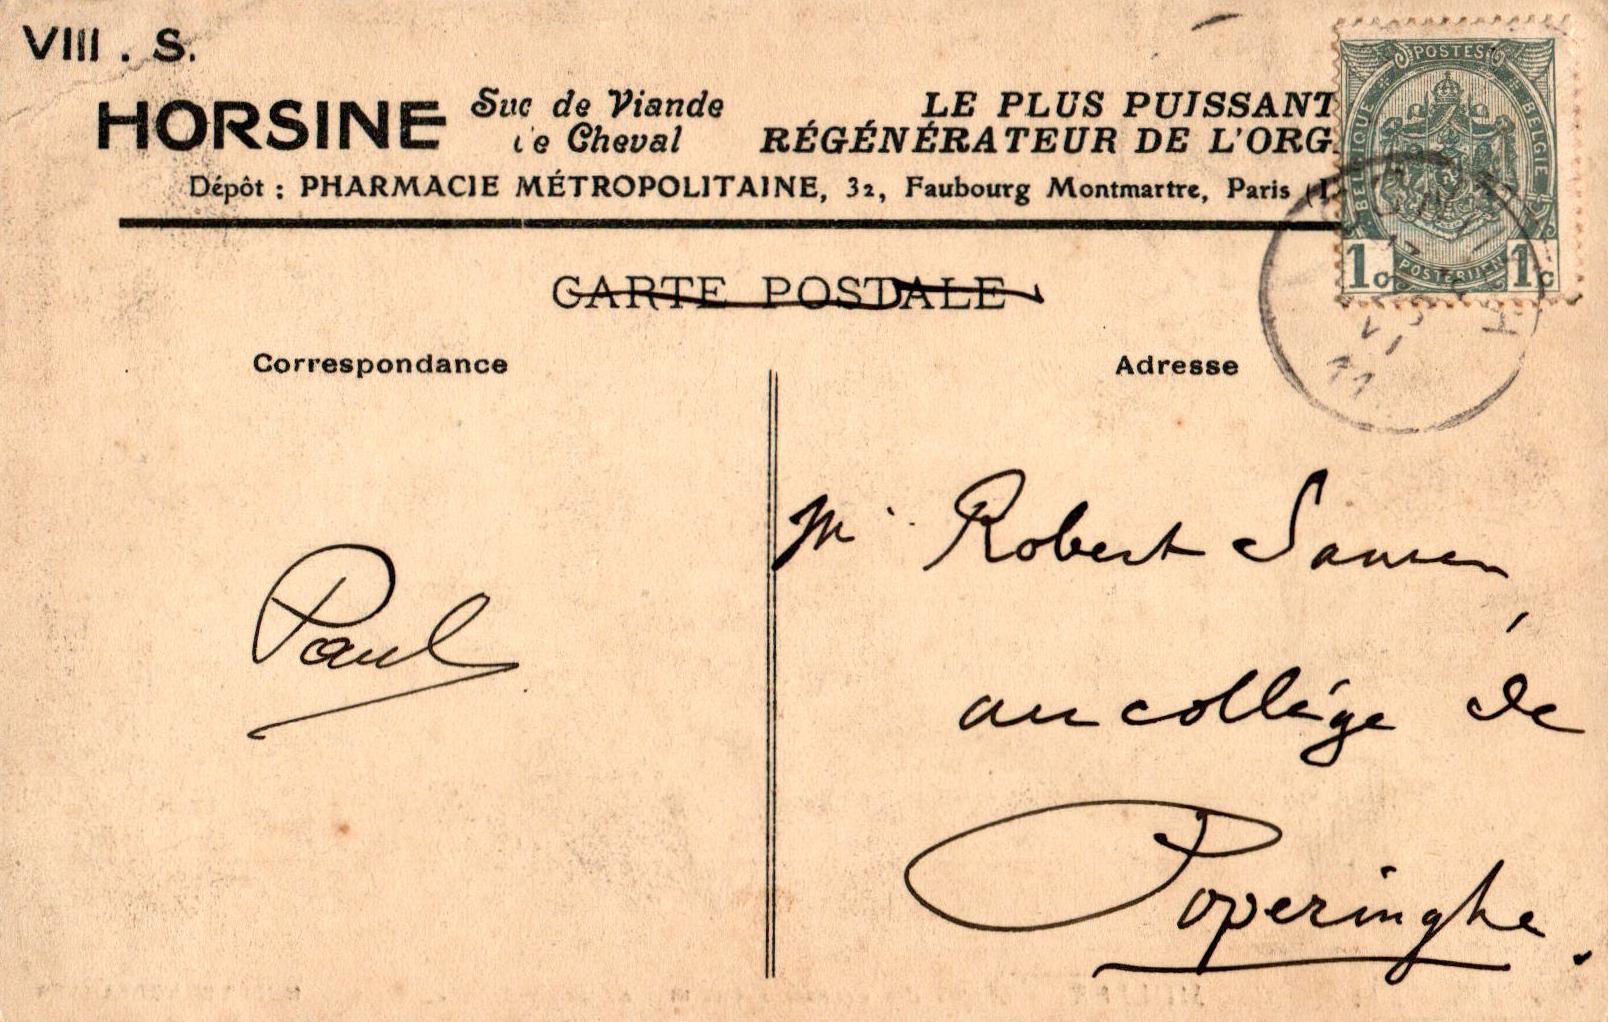 VIII . S.
HORSINE Suc de Viande de Cheval
LE PLUS PUISSANT
RÉGÉNÉRATEUR DE L'ORG
Dépôt : PHARMACIE MÉTROPOLITAINE, 32, Faubourg Montmartre, Paris
POSTES
BELGIQUE
BELGIE
POSTERIJEN
1c 1c
VI
11
CARTE POSTALE
Correspondance
Adresse
Paul
Mr Robert
au collège de
Poperinghe.